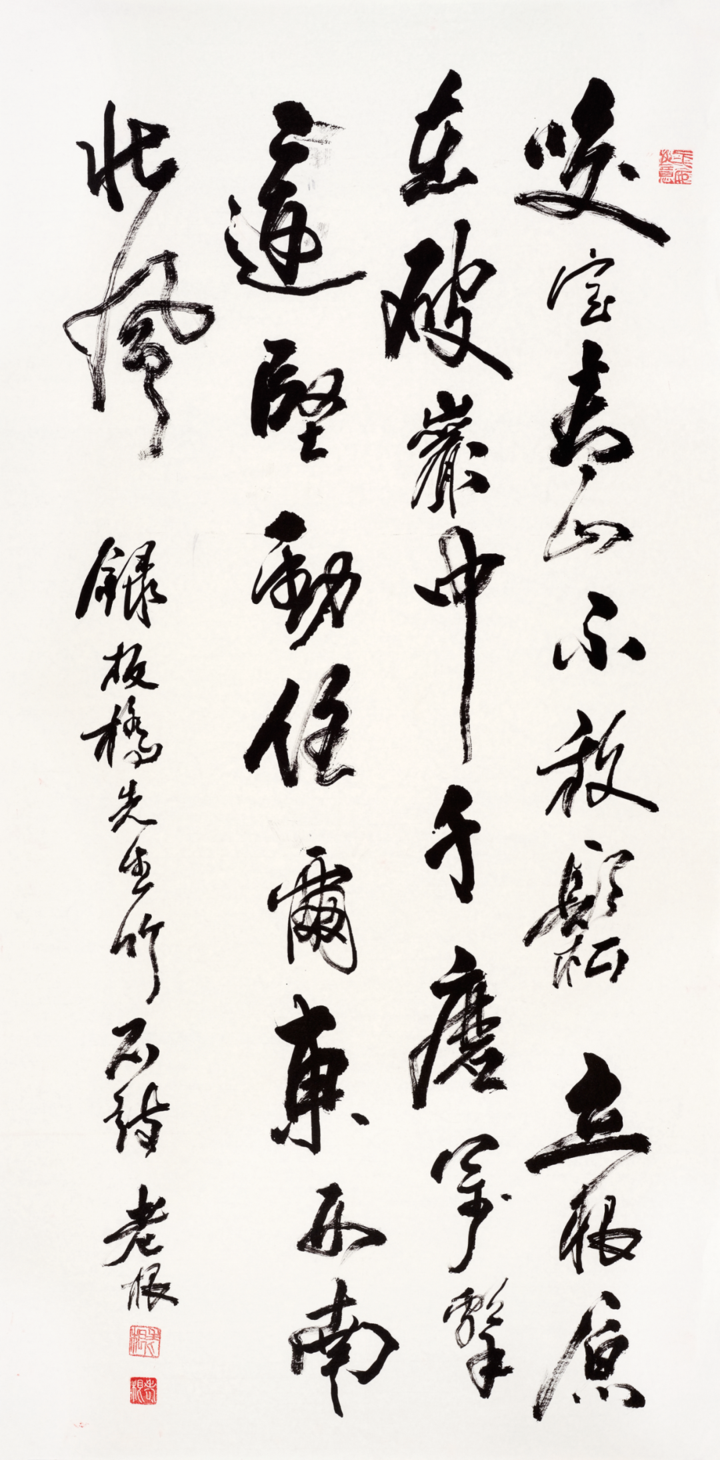 咬定青山不放鬆立根原
在破巖中千磨萬擊
還堅勁任爾東西南
北風
錄板橋先生竹石詩 老根